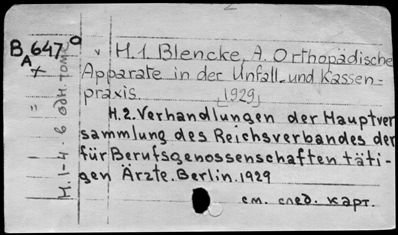 В 647⁹
А
H.1. Blencke, A. Orthopädische
Apparate in der Unfall- und Kassen-
praxis. 1929
H.2. Verhandlungen der Hauptver
sammlung des Reichsverbandes der
für Berufsgenossenschaften täti-
gen Ärzte. Berlin. 1929
см. след. карт.
H. 1-4. в одн. томе